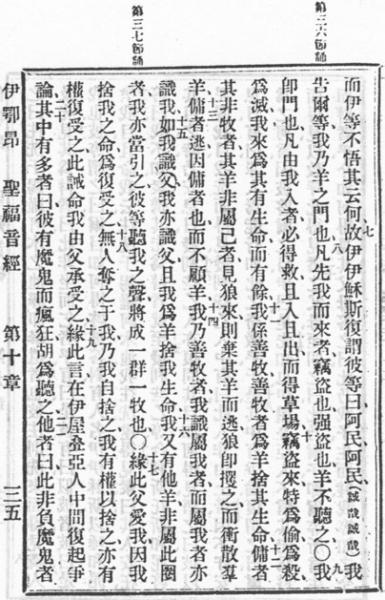 第三六節誦
第三七節誦
而伊等不悟其云何故伊伊穌斯復謂彼等曰阿民阿民(誠哉誠哉)我
七
告爾等我乃羊之門也凡先我而來者竊盜也强盜也羊不聽之〇我
八
九
卽門也凡由我入者必得救且入且出而得草場竊盜來特爲偷爲殺
十
爲滅我來爲其有生命而有餘我係善牧善牧者爲羊捨其生命傭者
十一
十二
其非牧者其羊非屬己者見狼來則棄其羊而逃狼卽攫之而衝散羣
羊傭者逃因傭者也而不顧羊我乃善牧者我識屬我者而屬我者亦
十三
十四
識我如我識父我亦識父且我爲羊捨我生命我又有他羊非屬此圈
十五
十六
者我亦當引之彼等聽我之聲將成一群一牧也〇緣此父愛我因我
十七
捨我之命爲復受之無人奪之于我乃我自捨之我有權以捨之亦有
十八
權復受之此誡命我由父承受之緣此言在伊屋叠亞人中間復起爭
十九
論其中有多者曰彼有魔鬼而瘋狂胡爲聽之他者曰此非負魔鬼者
二十
二一
伊鄂昂 聖福音經 第十章 三五